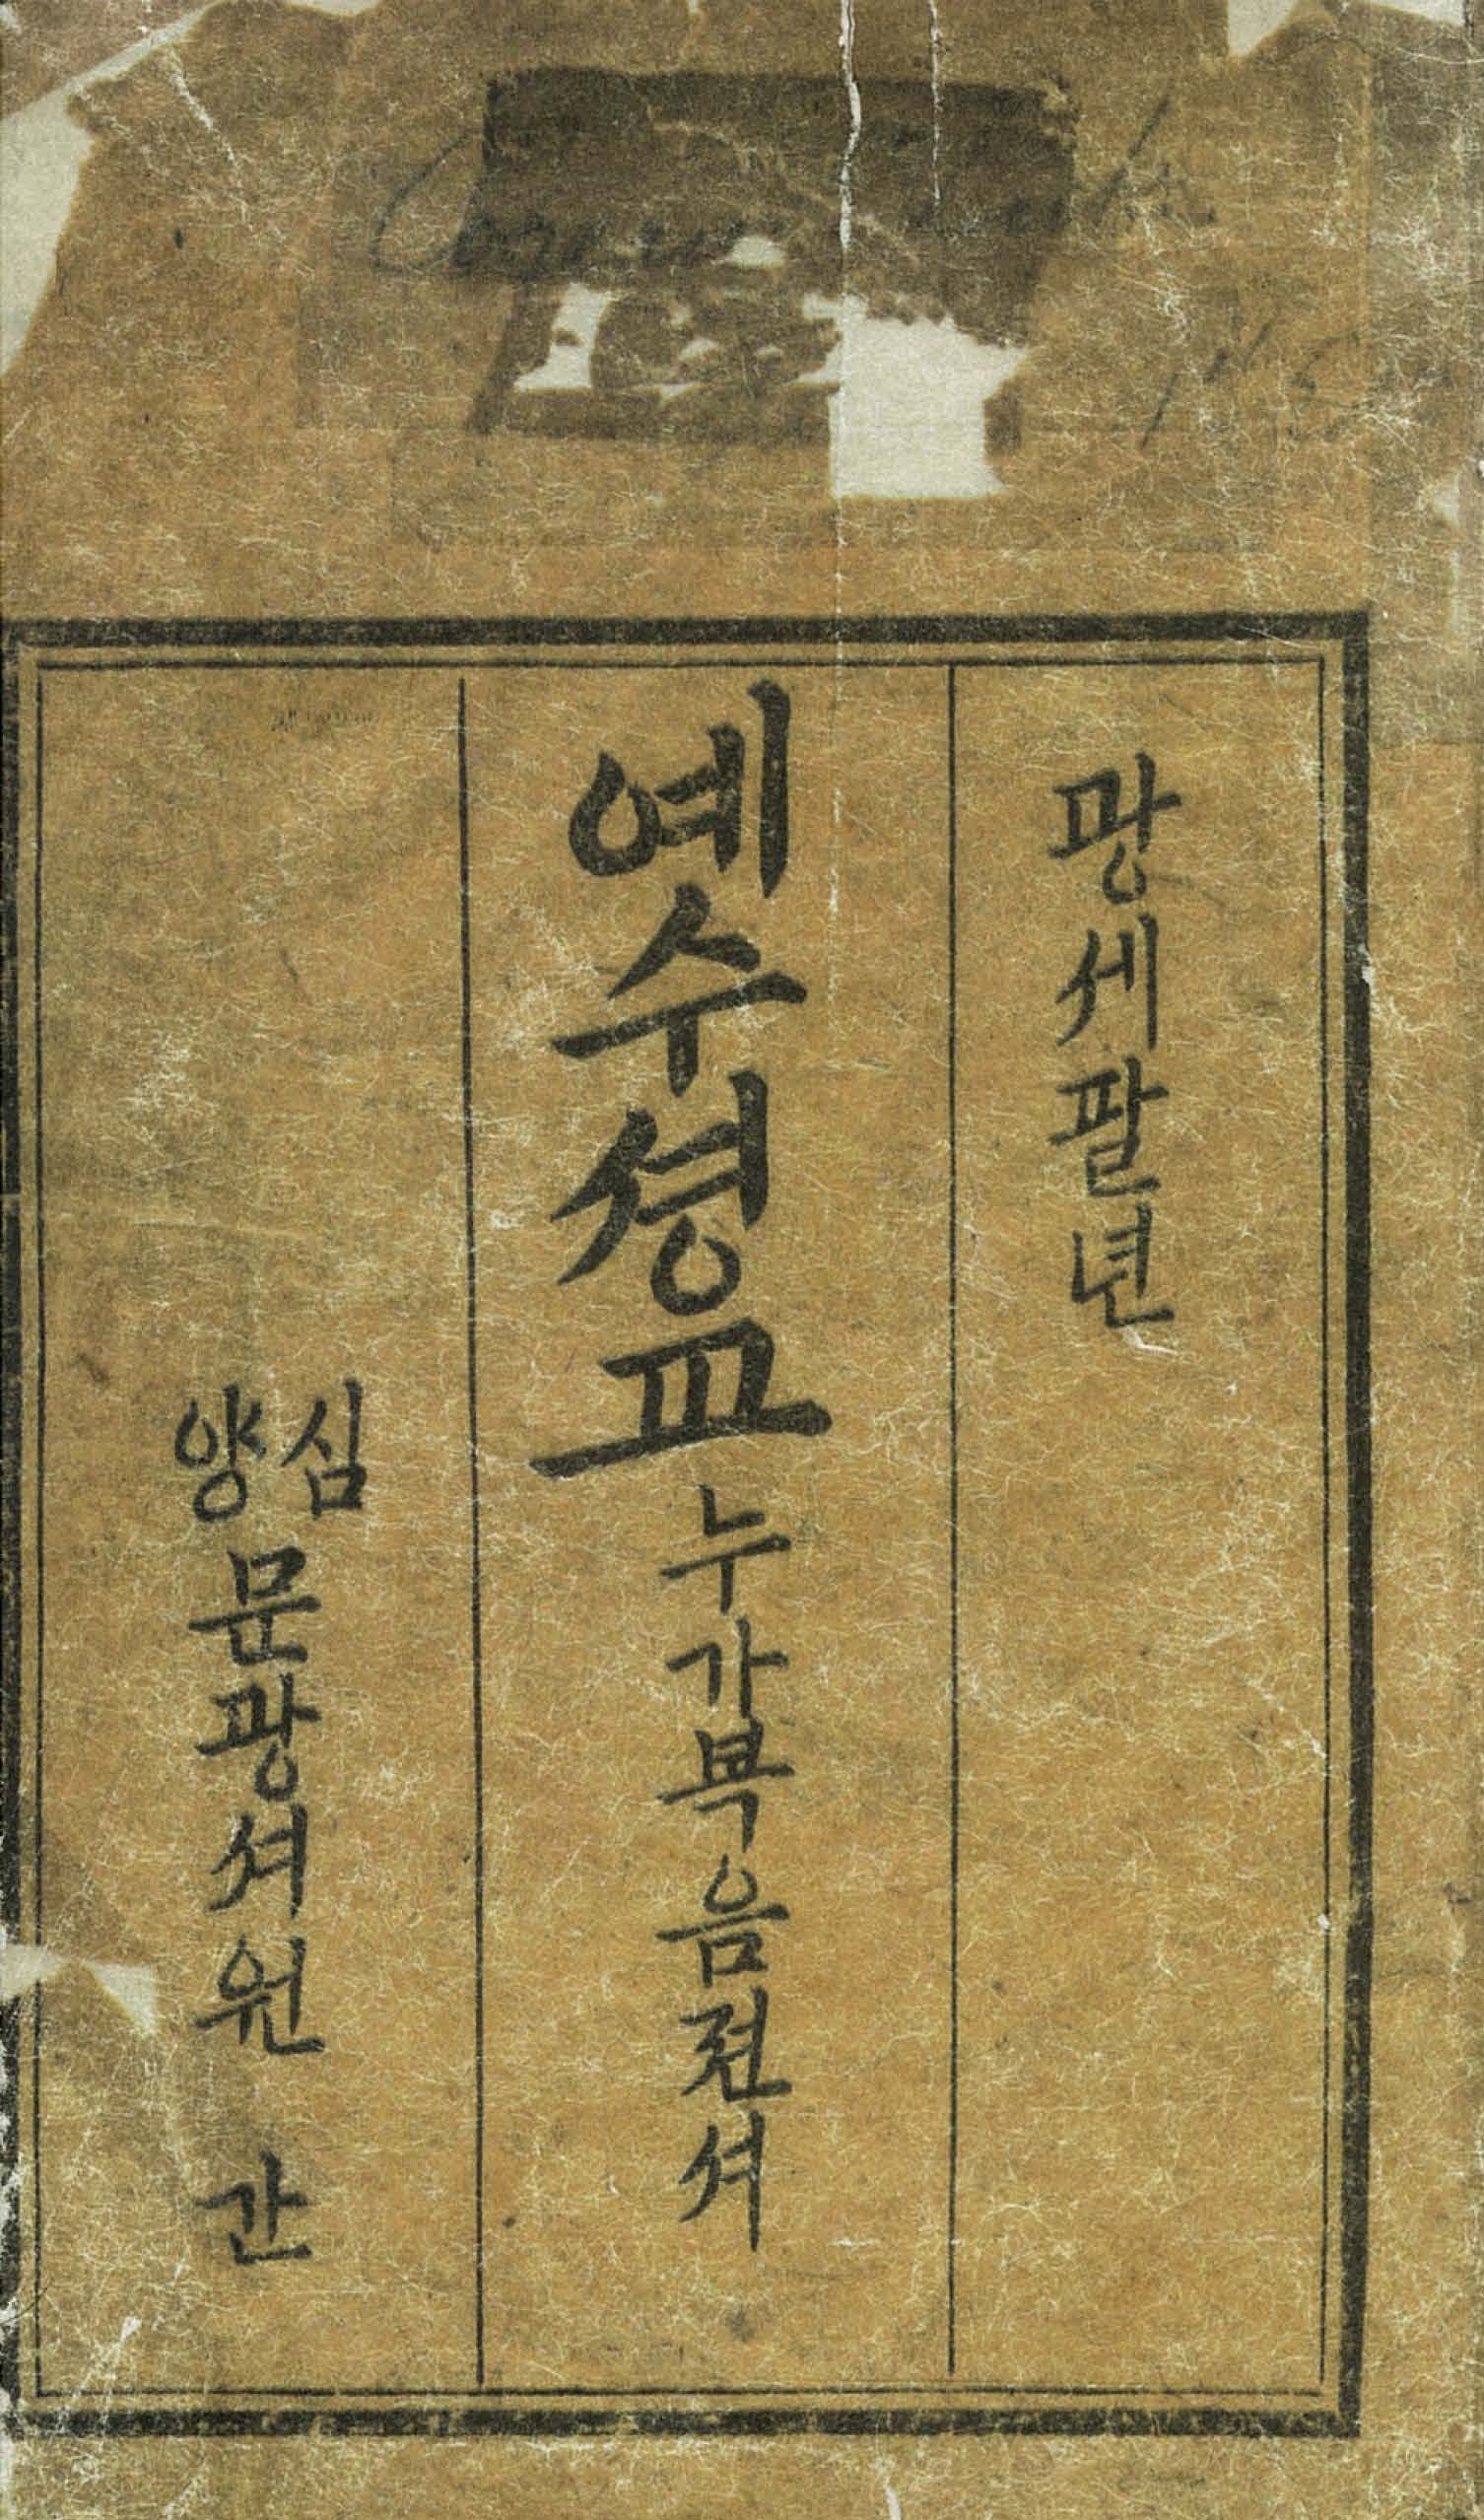 광세팔년
예수셩교 누가복음젼셔
심양 문광셔원 간